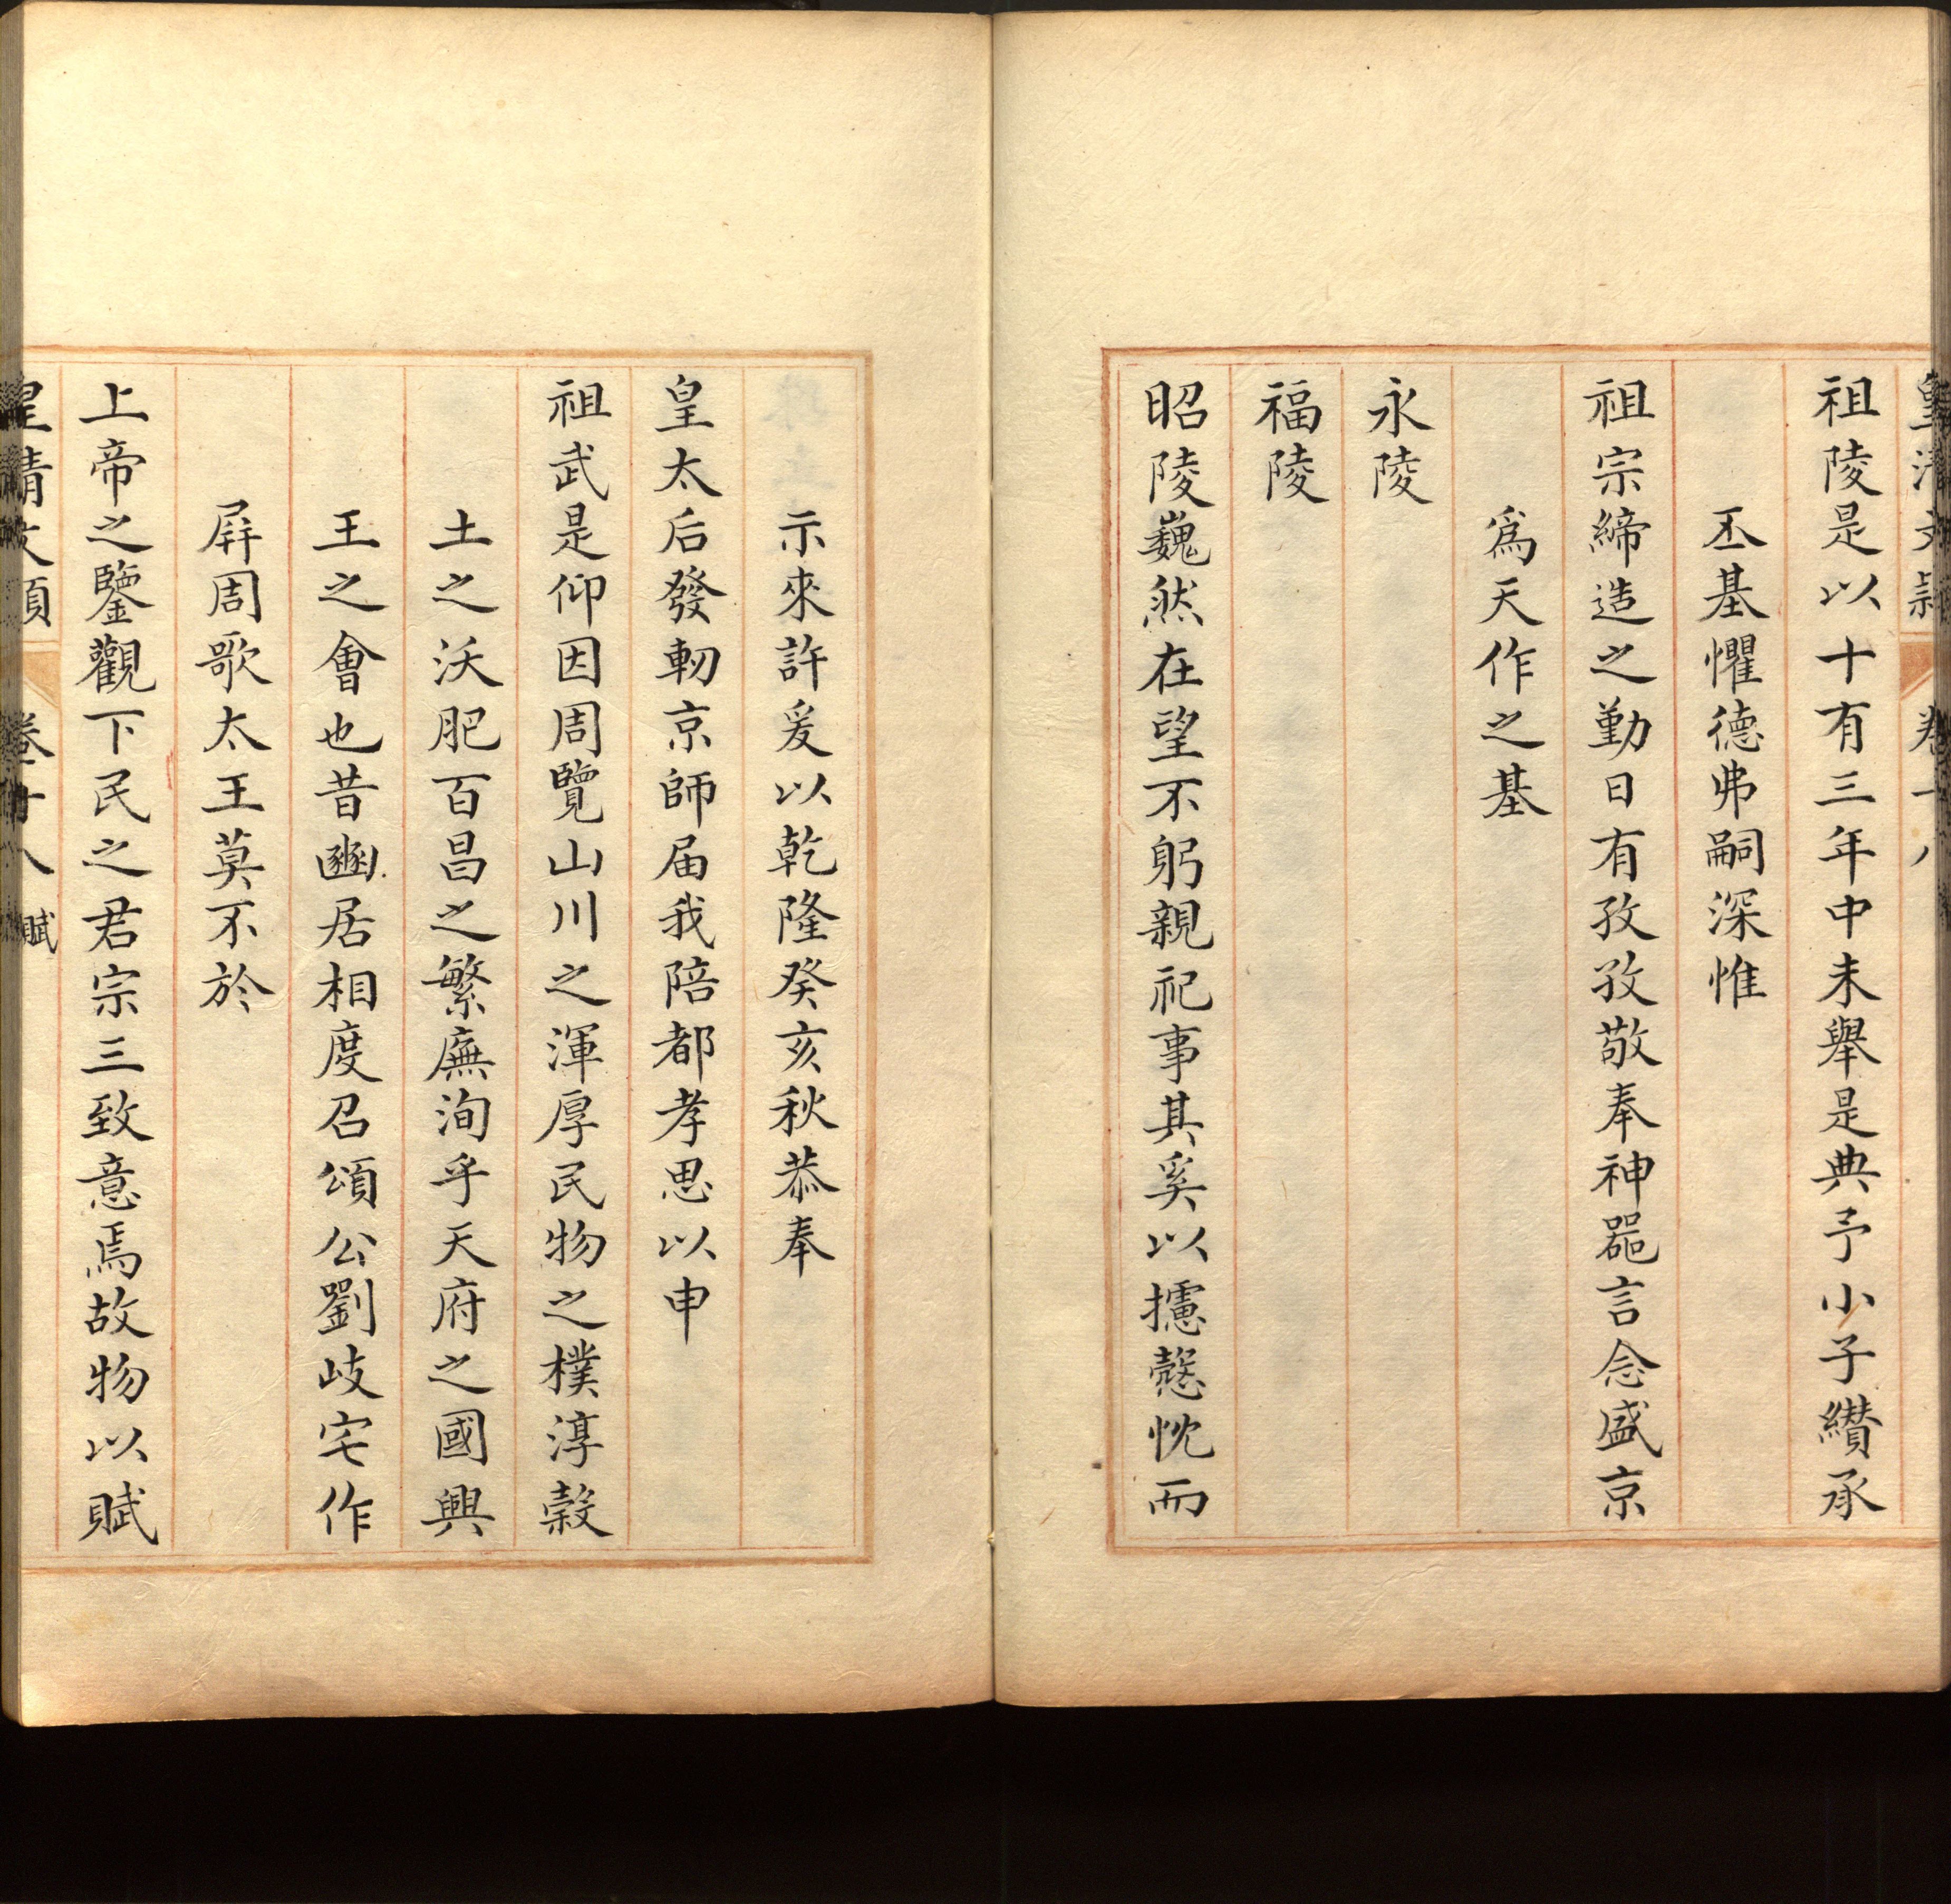 皇清文穎 卷十八
祖陵是以十有三年中未舉是典予小子纘承
丕基懼德弗嗣深惟
祖宗締造之勤日有孜孜敬奉神器言念盛京
爲天作之基
永陵
福陵
昭陵巍然在望不躬親祀事其奚以攄慤忱而
示來許爰以乾隆癸亥秋恭奉
皇太后發軔京師届我陪都孝思以申
祖武是仰因周覽山川之渾厚民物之樸淳穀
土之沃肥百昌之繁廡洵乎天府之國興
王之會也昔豳居相度召頌公劉岐宅作
屏周歌太王莫不於
上帝之鑒觀下民之君宗三致意焉故物以賦
皇清文穎 卷十八 賦